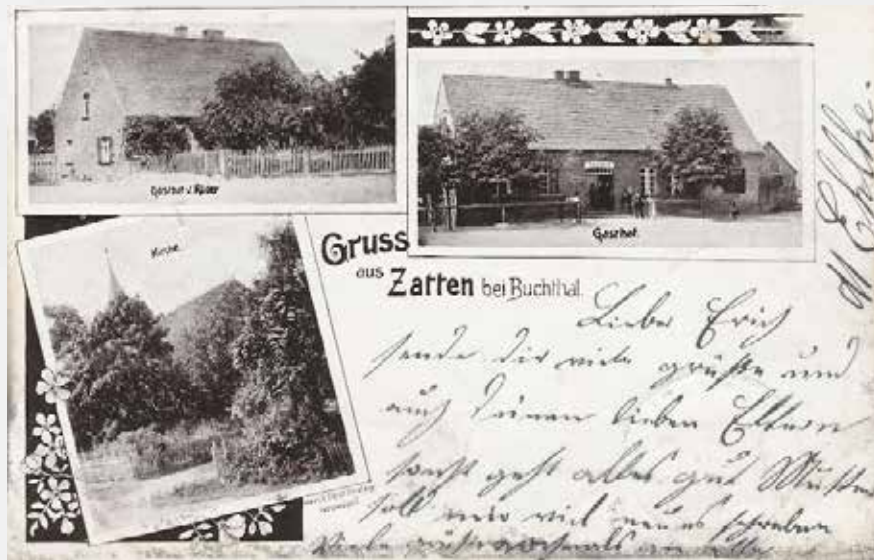 Gasthof v. Röser
Gasthof.
Kirche.
Gruss
aus Zatten bei Buchthal.
Liebe Erich
sende dir viele grüße und
auch deinen lieben Eltern
sonst geht alles gut Mutter
soll mir viel neues schreiben
Viele